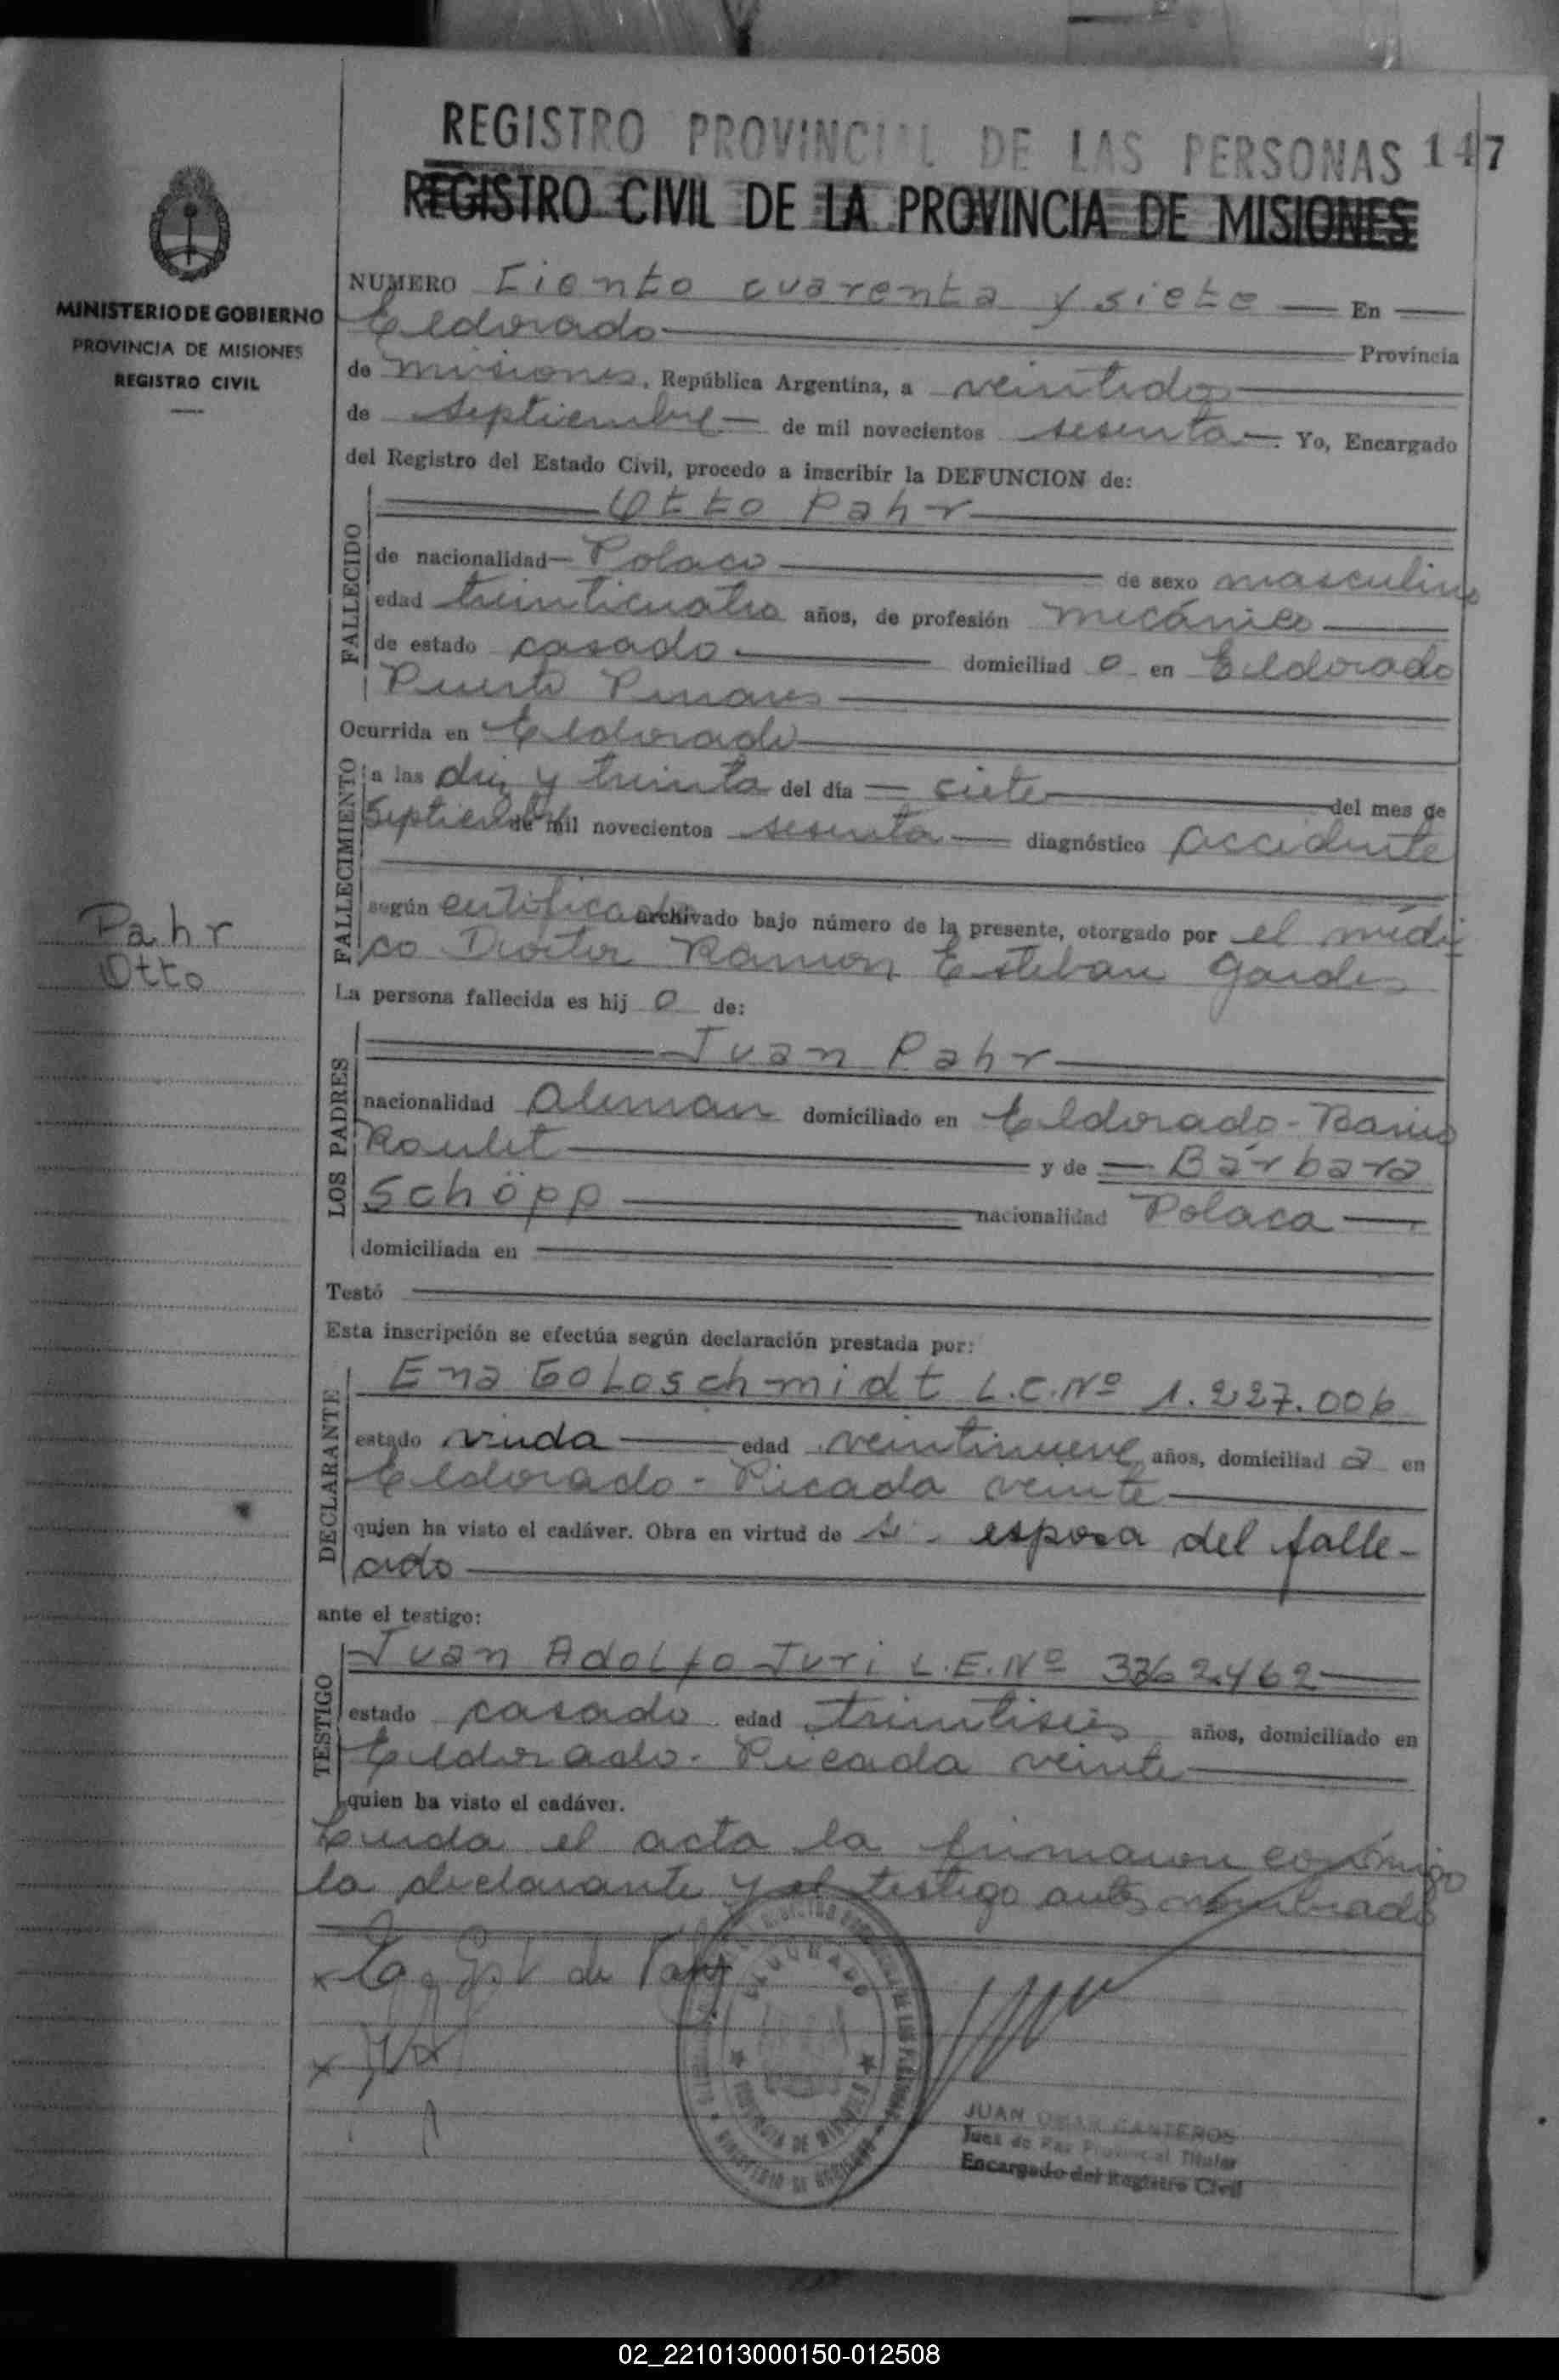 REGISTRO PROVINCIAL DE LAS PERSONAS 147
REGISTRO CIVIL DE LA PROVINCIA DE MISIONES
MINISTERIO DE GOBIERNO
PROVINCIA DE MISIONES
REGISTRO CIVIL
NUMERO Ciento cuarenta y siete En
Eldorado Provincia
de Misiones, República Argentina, a veintidos
de Septiembre de mil novecientos sesenta. Yo, Encargado
del Registro del Estado Civil, procedo a inscribir la DEFUNCION de:
Otto Pahr
FALLECIDO
de nacionalidad Polaco de sexo masculino
edad treinticuatro años, de profesión mecánico
de estado casado domiciliad o en Eldorado
Puerto Pinares
Ocurrida en Eldorado
FALLECIMIENTO
a las diez y treinta del día siete del mes de
Septiembre de mil novecientos sesenta diagnóstico accidente
según certificado archivado bajo número de la presente, otorgado por el médi
co Doctor Ramon Esteban
Pahr
Otto
La persona fallecida es hij o de:
Juan Pahr
LOS PADRES
nacionalidad Aleman domiciliado en Eldorado - Barrio
Roulet y de Bárbara
Schöpp nacionalidad Polaca
domiciliada en
Testó
Esta inscripción se efectúa según declaración prestada por:
DECLARANTE
Ena Goldschmidt L.C.Nº 1.227.006
estado viuda edad veintinueve años, domiciliad a en
Eldorado - Picada veinte
quien ha visto el cadáver. Obra en virtud de esposa del falle-
cido
ante el testigo:
TESTIGO
Juan Adolfo Juri L.E.Nº 3362.462
estado casado edad treintiseis años, domiciliado en
Eldorado - Picada veinte
quien ha visto el cadáver.
Leida el acta la firmaron conmigo
la declarante y el testigo antes nombrado
de Pahr
ELDORADO
PROVINCIA DE MISIONES
JUAN OMAR CANTEROS
Juez de Paz Provincial Titular
Encargado del Registro Civil
02_221013000150-012508